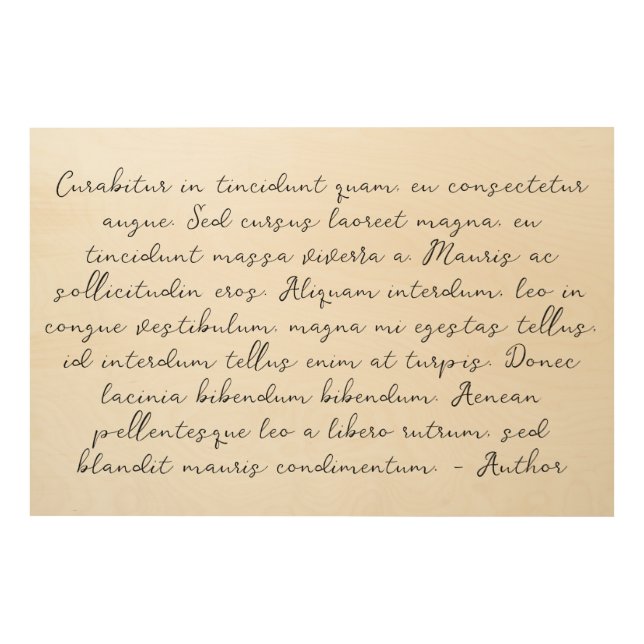 Curabitur in tincidunt quam, eu consectetur
augue. Sed cursus laoreet magna, eu
tincidunt massa viverra a. Mauris ac
sollicitudin eros. Aliquam interdum, leo in
congue vestibulum, magna mi egestas tellus,
id interdum tellus enim at turpis. Donec
lacinia bibendum bibendum. Aenean
pellentesque leo a libero rutrum, sed
blandit mauris condimentum. - Author